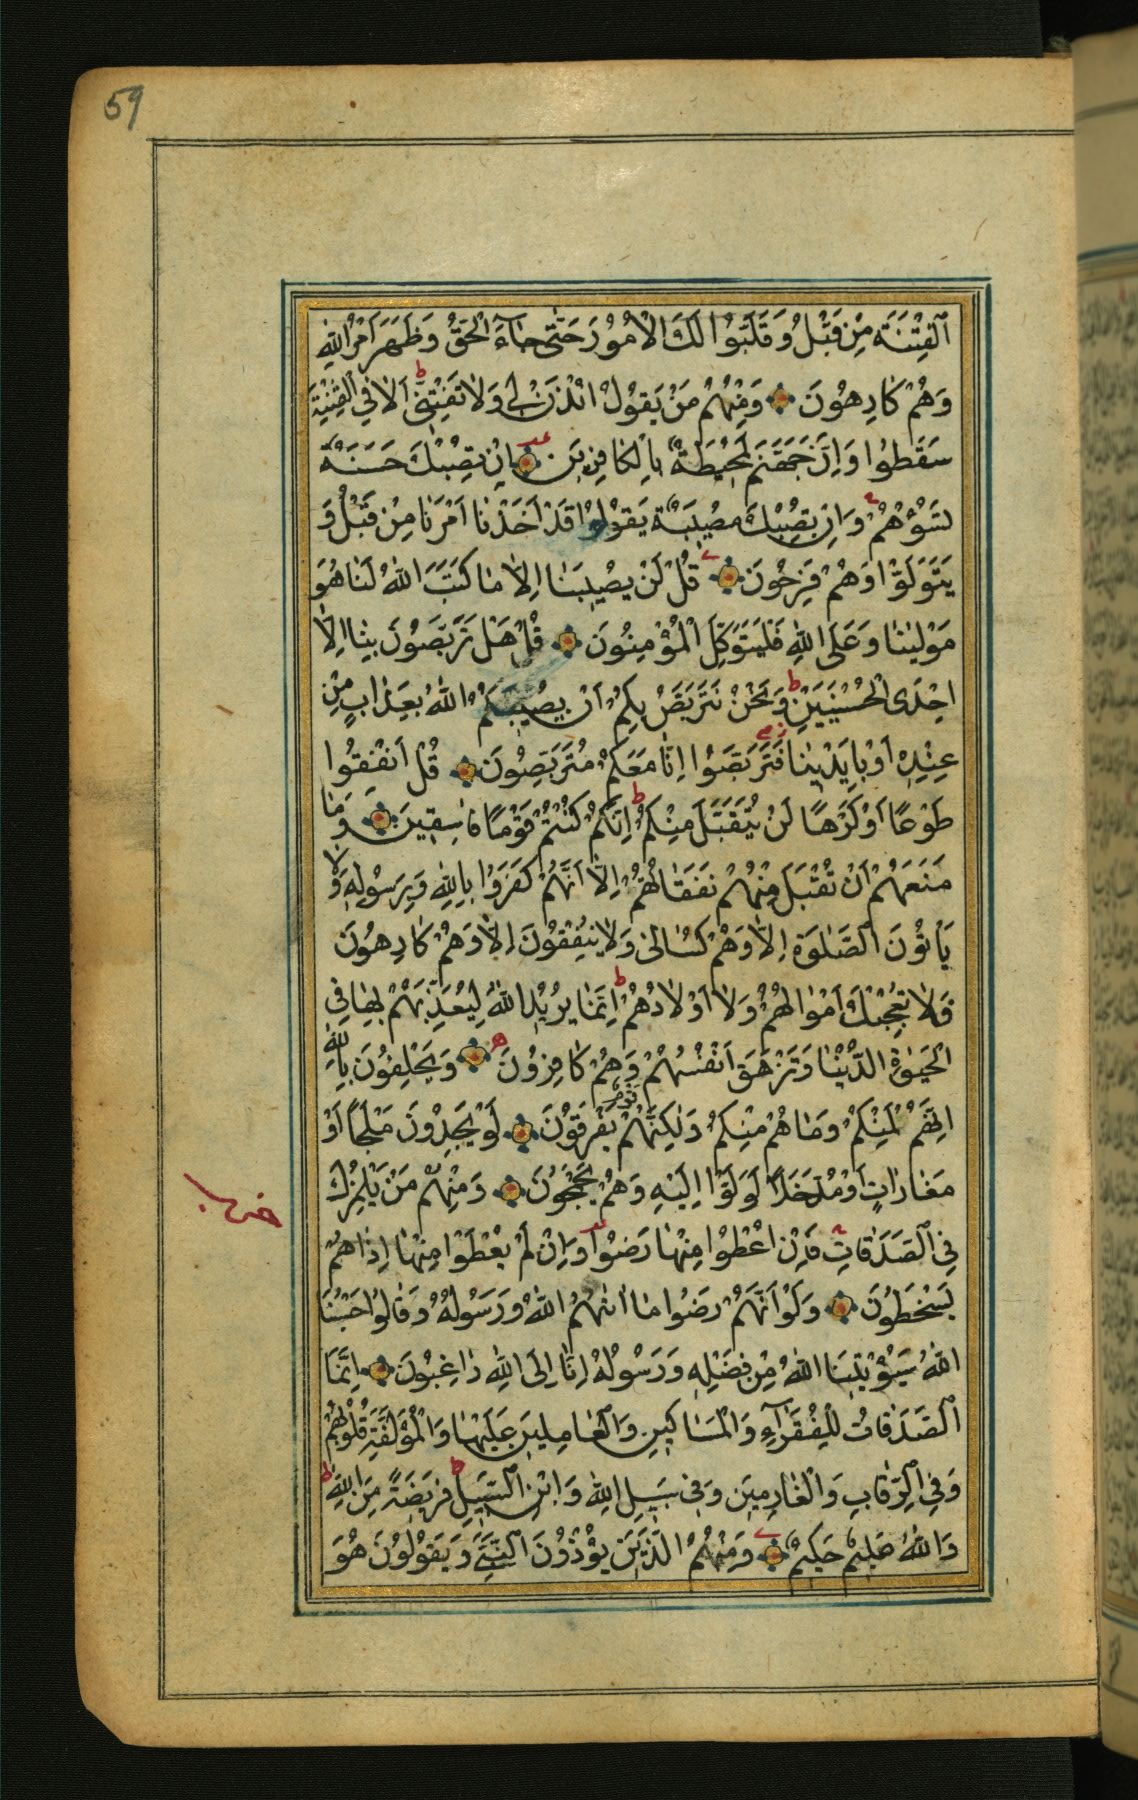 59
اَلْفِتْنَةَ مِنْ قَبْلُ وَقَلَّبُوا لَكَ الْاُمُورَ حَتّٰى جَاءَ الْحَقُّ وَظَهَرَ اَمْرُ اللّٰهِ
وَهُمْ كَارِهُونَ وَمِنْهُمْ مَنْ يَقُولُ ائْذَنْ لِي وَلَا تَفْتِنِّي اَلَا فِي الْفِتْنَةِ
سَقَطُوا وَاِنَّ جَهَنَّمَ لَمُحِيطَةٌ بِالْكَافِرِينَ اِنْ تُصِبْكَ حَسَنَةٌ
تَسُؤْهُمْ وَاِنْ تُصِبْكَ مُصِيبَةٌ يَقُولُوا قَدْ اَخَذْنَا اَمْرَنَا مِنْ قَبْلُ وَ
يَتَوَلَّوْا وَهُمْ فَرِحُونَ قُلْ لَنْ يُصِيبَنَا اِلَّا مَا كَتَبَ اللّٰهُ لَنَا هُوَ
مَوْلٰينَا وَعَلَى اللّٰهِ فَلْيَتَوَكَّلِ الْمُؤْمِنُونَ قُلْ هَلْ تَرَبَّصُونَ بِنَا اِلَّا
اِحْدَى الْحُسْنَيَيْنِ وَنَحْنُ نَتَرَبَّصُ بِكُمْ اَنْ يُصِيبَكُمُ اللّٰهُ بِعَذَابٍ مِنْ
عِنْدِهِ اَوْ بِاَيْدِينَا فَتَرَبَّصُوا اِنَّا مَعَكُمْ مُتَرَبِّصُونَ قُلْ اَنْفِقُوا
طَوْعًا اَوْ كَرْهًا لَنْ يُتَقَبَّلَ مِنْكُمْ اِنَّكُمْ كُنْتُمْ قَوْمًا فَاسِقِينَ وَمَا
مَنَعَهُمْ اَنْ تُقْبَلَ مِنْهُمْ نَفَقَاتُهُمْ اِلَّا اَنَّهُمْ كَفَرُوا بِاللّٰهِ وَبِرَسُولِهِ وَلَا
يَاْتُونَ الصَّلٰوةَ اِلَّا وَهُمْ كُسَالٰى وَلَا يُنْفِقُونَ اِلَّا وَهُمْ كَارِهُونَ
فَلَا تُعْجِبْكَ اَمْوَالُهُمْ وَلَا اَوْلَادُهُمْ اِنَّمَا يُرِيدُ اللّٰهُ لِيُعَذِّبَهُمْ بِهَا فِي
الْحَيٰوةِ الدُّنْيَا وَتَزْهَقَ اَنْفُسُهُمْ وَهُمْ كَافِرُونَ وَيَحْلِفُونَ بِاللّٰهِ
اِنَّهُمْ لَمِنْكُمْ وَمَا هُمْ مِنْكُمْ وَلٰكِنَّهُمْ قَوْمٌ يَفْرَقُونَ لَوْ يَجِدُونَ مَلْجَأً اَوْ
مَغَارَاتٍ اَوْ مُدَّخَلًا لَوَلَّوْا اِلَيْهِ وَهُمْ يَجْمَحُونَ وَمِنْهُمْ مَنْ يَلْمِزُكَ
فِي الصَّدَقَاتِ فَاِنْ اُعْطُوا مِنْهَا رَضُوا وَاِنْ لَمْ يُعْطَوْا مِنْهَا اِذَا هُمْ
يَسْخَطُونَ وَلَوْ اَنَّهُمْ رَضُوا مَا اٰتٰيهُمُ اللّٰهُ وَرَسُولُهُ وَقَالُوا حَسْبُنَا
اللّٰهُ سَيُؤْتِينَا اللّٰهُ مِنْ فَضْلِهِ وَرَسُولُهُ اِنَّا اِلَى اللّٰهِ رَاغِبُونَ اِنَّمَا
الصَّدَقَاتُ لِلْفُقَرَاءِ وَالْمَسَاكِينِ وَالْعَامِلِينَ عَلَيْهَا وَالْمُؤَلَّفَةِ قُلُوبُهُمْ
وَفِي الرِّقَابِ وَالْغَارِمِينَ وَفِي سَبِيلِ اللّٰهِ وَابْنِ السَّبِيلِ فَرِيضَةً مِنَ اللّٰهِ
وَاللّٰهُ عَلِيمٌ حَكِيمٌ وَمِنْهُمُ الَّذِينَ يُؤْذُونَ النَّبِيَّ وَيَقُولُونَ هُوَ